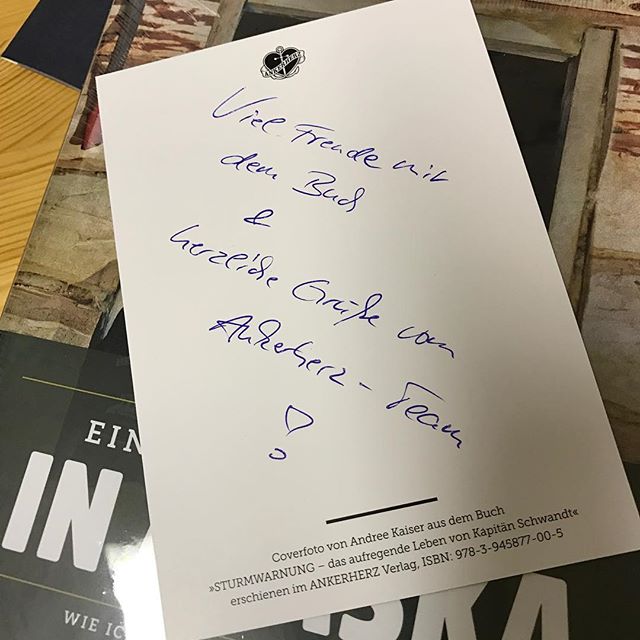 ANKERHERZ
Viel Freude mit
dem Buch
&
herzliche Grüße vom
Ankerherz-Team
!
Coverfoto von Andree Kaiser aus dem Buch
»STURMWARNUNG – das aufregende Leben von Kapitän Schwandt«
erschienen im ANKERHERZ Verlag, ISBN: 978-3-945877-00-5
EIN
IN
WIE IC
ISKA